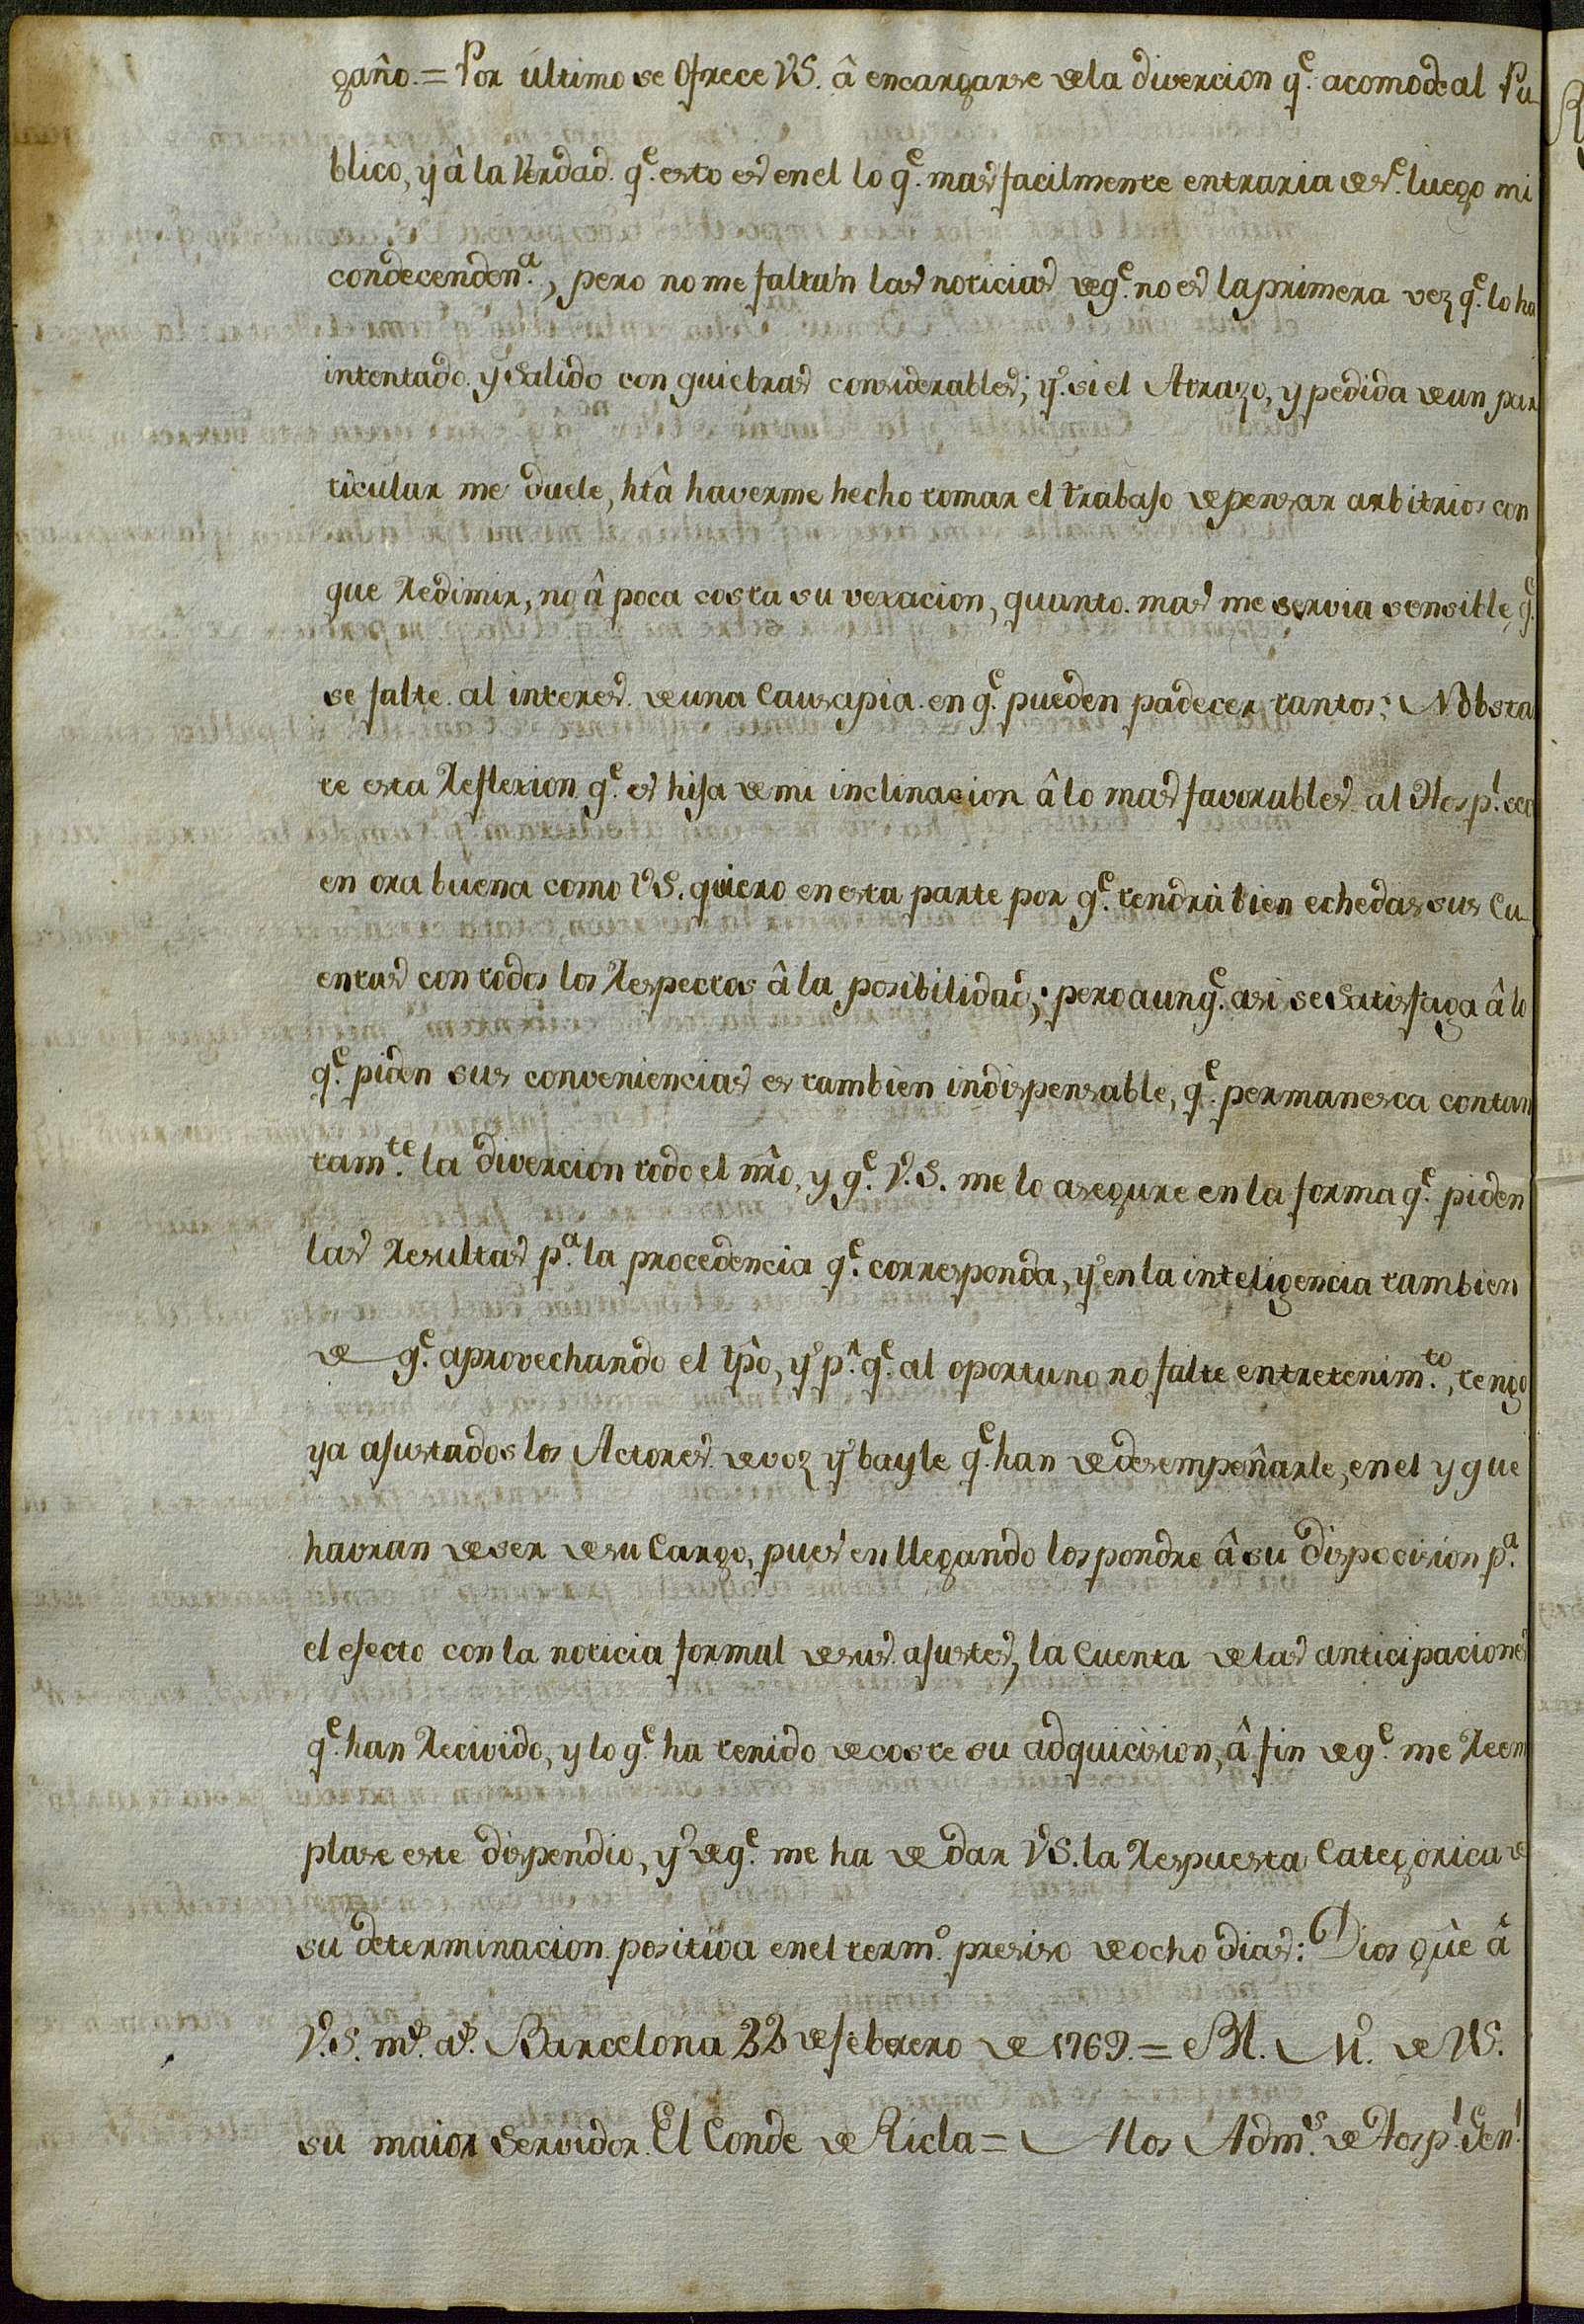 gaño. = Por último se Ofrece VS. â encargarse dela divercion q.e acomode al Pu-
blico, y â la Verdad. q.e esto es en el lo q.e mas facilmente entraria des.e luego mi
condecenden.a, pero no me faltan las noticias deq.e no es laprimera vez q.e lo ha
intentado. y Salido con quiebras considerables; y.e si el Atrazo, y pedida deun par
ticular me duele, htâ haverme hecho tomar el trabajo depensar arbitrios con
que Redimir, no â poca costa su vexacion, quanto. mas me servia sensible, q.e
se falte. al interes. deuna Causapia. en q.e pueden padecer tantos; Nobstan
te esta Reflexion q.e es hija demi inclinacion â lo mas favorables al Hosp.l
en ora buena como VS. quiero enesta parte por q.e tendrà bien echedas sus Cu-
entas con todos los Respectos â la posibilidad; pero aunq.e asi se Satisfaga â lo
q.e piden sus conveniencias es tambien indispensable, q.e permanesca contan
tam.te la divercion todo el nrô, y q.e V.S. me lo asegure en la forma q.e piden
las Resultas p.a la procedencia q.e corresponda, y en la inteligencia tambien
de q.e aprovechando el tpô, y p.a q.e al oportuno no falte entretenim.to, tengo
ya ajustados los Actores. devoz y bayle q.e han dedesempeñarle, en el y que
havran deser desu Cargo, pues en llegando los pondre â su dispocision p.a
el efecto con la noticia formal desus. ajustes, la Cuenta delas anticipaciones
q.e han Recivido, y lo q.e ha tenido decoste su adquicision, â fin deq.e me Reem
plase este dispendio, y deq.e me ha dedar VS. la Respuesta Categorica de
su determinacion positiva enel term.o presiso deocho dias: Dios gûe â
V.S. m.s a.s Barcelona 22 defeberero de 1769. = Bl. M. de VS.
su maior Servidor. El Conde de Ricla = Alos Adm.s de Hosp.l Gen.l